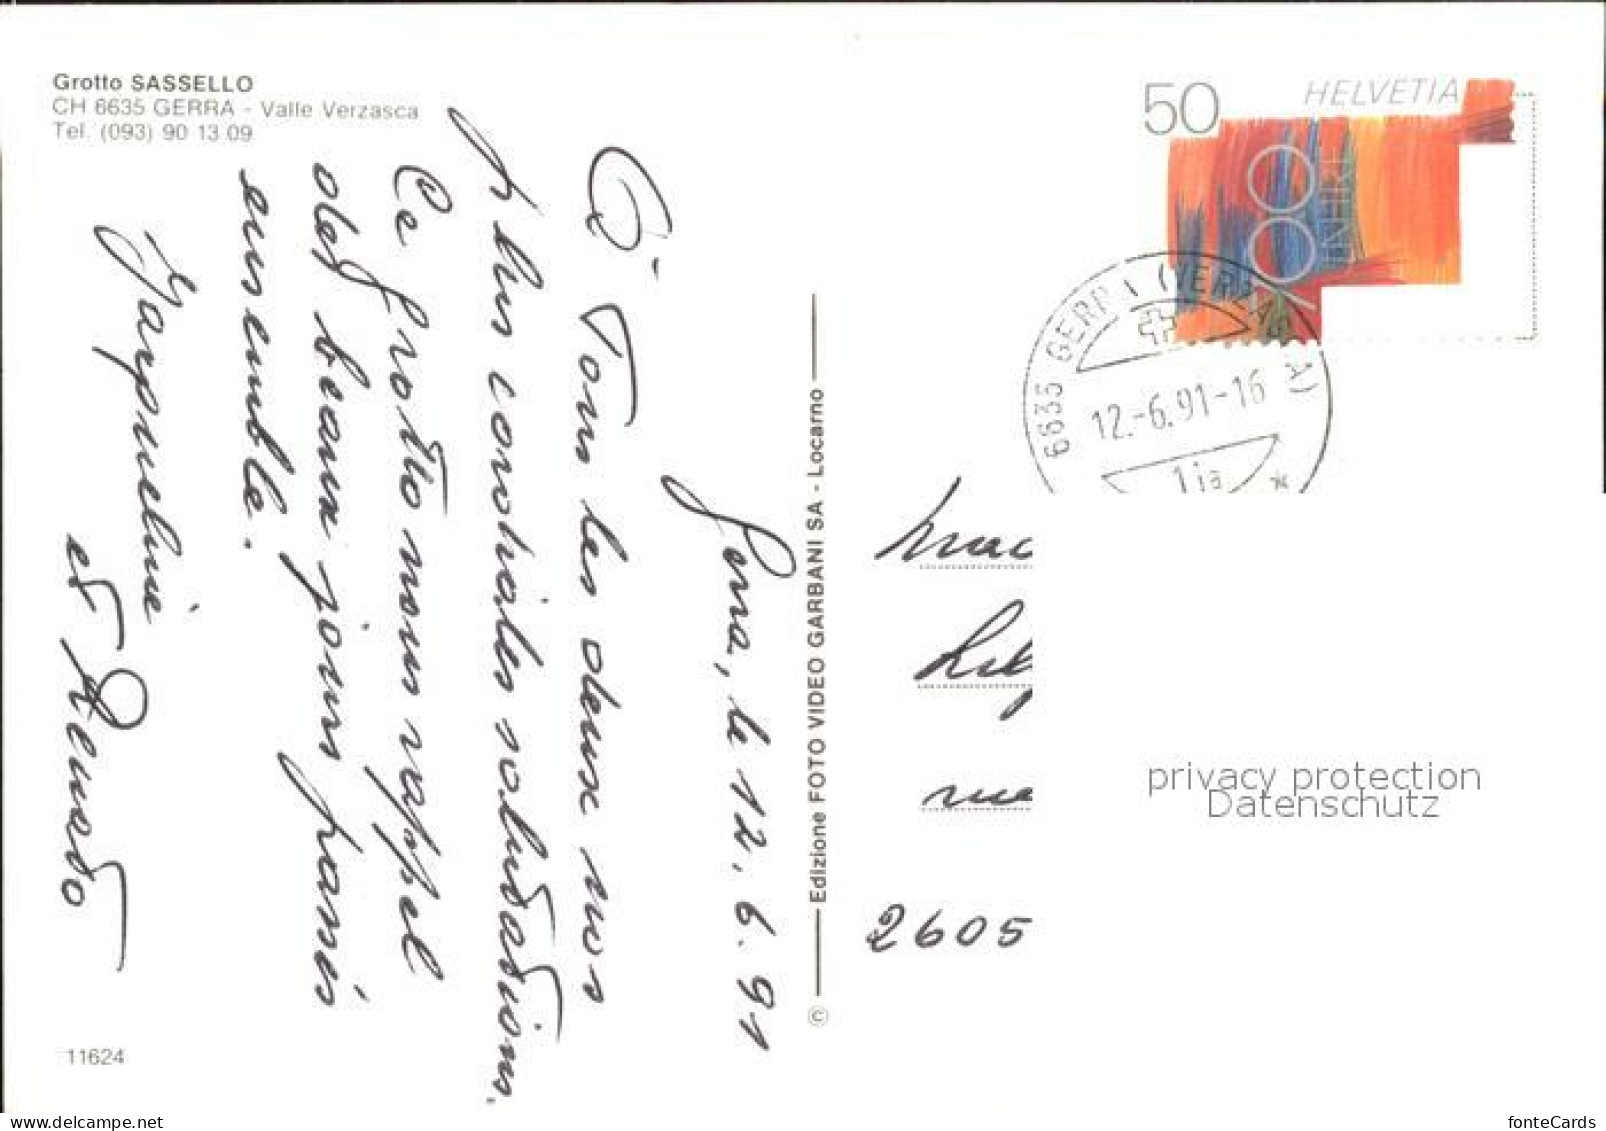 Grotto SASSELLO
CH 6635 GERRA - Valle Verzasca
Tel. (093) 90 13 09
50 HELVETIA
700
6635 GERRA (VERZASCA)
12.-6.91-16
Gerra, le 12.6.91
A Tous les deux nos
plus cordiales salutations.
Ce grotto nous rappel
des beaux jours passés
ensemble.
Jacqueline
et Renato
© Edizione FOTO VIDEO GARBANI SA - Locarno
2605
privacy protection
Datenschutz
11624
fonteCards